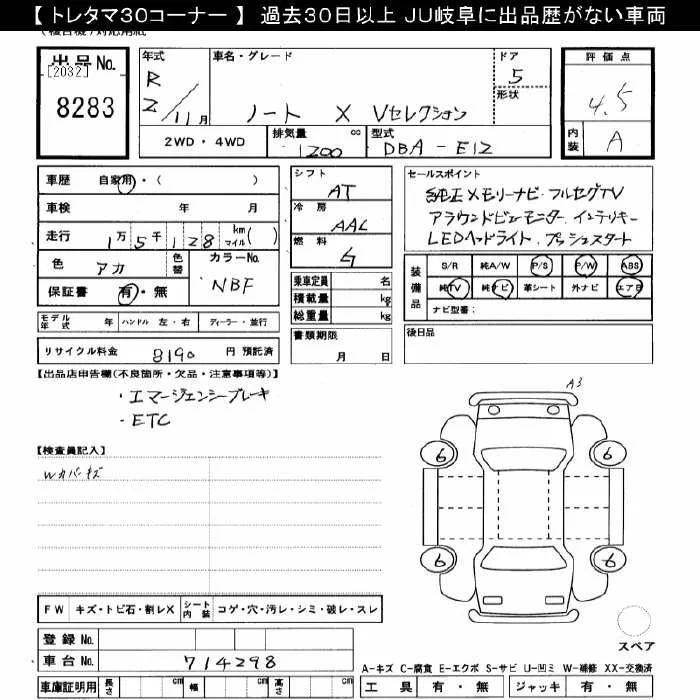 【 トレタマ30コーナー 】 過去30日以上 JU岐阜に出品歴がない車両
出品No.
[2032]
8283
年式
R
2/11月
車名・グレード
ノート X Vセレクション
ドア
5
形状
評価点
4.5
内装
A
2WD・4WD
排気量
cc
1200
型式
DBA-E12
車歴
自家用・( )
車検
年 月
走行
1万5千128
km
マイル( )
色
アカ
色替
カラーNo.
NBF
保証書
有・無
シフト
AT
冷房
AAC
燃料
G
乗車定員 名
積載量 kg
総重量 kg
書類期限
月 日
セールスポイント
純正メモリーナビ・フルセグTV
アラウンドビューモニター インテリキー
LEDヘッドライト、プッシュスタート
装備品
S/R 純A/W P/S P/W ABS
純TV 純ナビ 革シート 外ナビ エアB
ナビ型番:
後日品
モデル年式 年 ハンドル 左・右 ディーラー・並行
リサイクル料金 8190 円 預託済
【出品店申告欄(不良箇所・欠品・注意事項等)】
・エマージェンシーブレーキ
・ETC
【検査員記入】
Wカバーキズ
A3
6
6
6
6
スペア
FW キズ・トビ石・割レX
シート内装 コゲ・穴・汚レ・シミ・破レ・スレ
登録No.
車台No. 714298
車庫証明用 長さ cm 幅 cm 高さ cm
A-キズ C-腐食 E-エクボ S-サビ U-凹ミ W-補修 XX-交換済
工具 有・無 ジャッキ 有・無